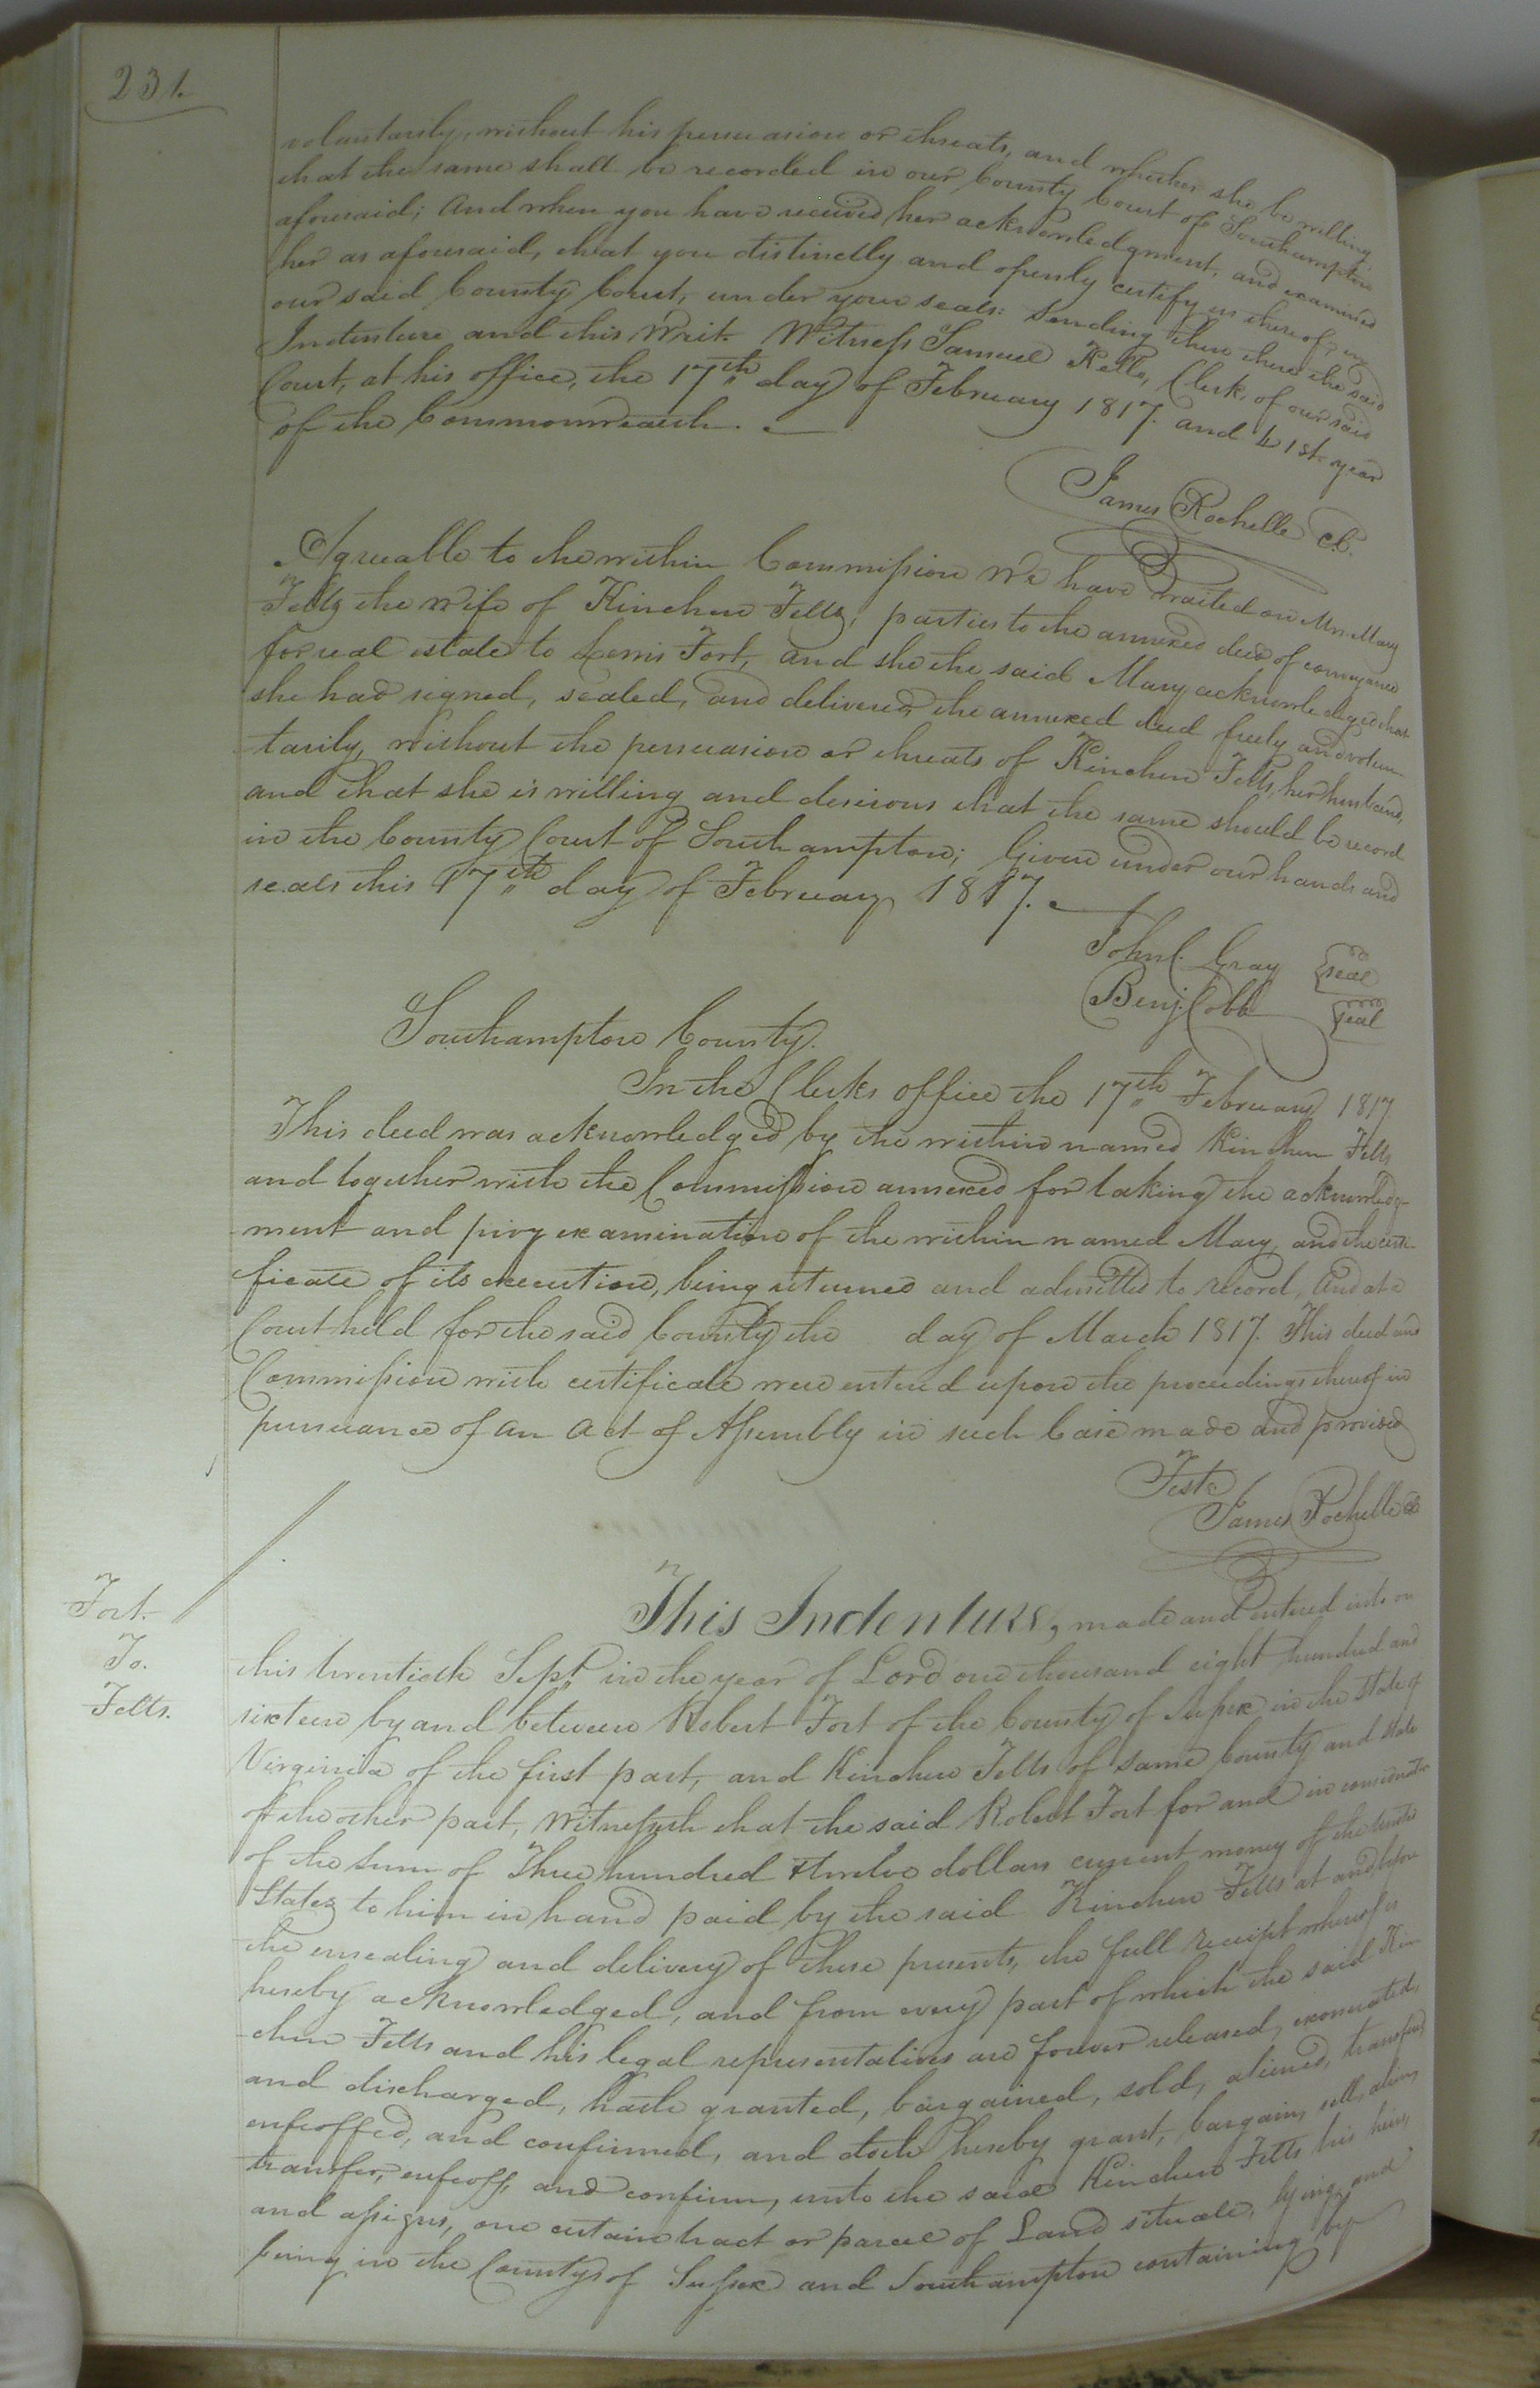 231.
voluntarily, without his persuasion or threats, and whether she be willing
that the same shall be recorded in our County Court of Southampton
aforesaid; And when you have received her acknowledgment, and examined
her as aforesaid, that you distinctly and openly certify us thereof, in
our said County Court, under your seals: Sending then there the said
Indenture and this Writ. Witness Samuel Kello, Clerk, of our said
Court, at his office, the 17th day of February 1817. and 41st year
of the Commonwealth.
James Rochelle C.C.
Agreeable to the within Commission We have waited on Mrs. Mary
Felts the wife of Kinchen Felts, parties to the annexed deed of conveyance
for real estate to Lewis Fort, and she the said Mary acknowledged that
she had signed, sealed, and delivered the annexed deed freely and volun-
tarily, without the persuasion or threats of Kinchen Felts, her husband,
and that she is willing and desirous that the same should be record
in the County Court of Southampton; Given under our hands and
seals this 17th day of February 1817.
John C. Gray seal
Benj. Cobb seal
Southampton County.
In the Clerks office the 17th February 1817
This deed was acknowledged by the within named Kinchen Felts
and together with the Commission annexed for taking the acknowledg-
ment and privy examination of the within named Mary, and the certi-
ficate of its execution, being returned and admitted to record, And at a
Court held for the said County the day of March 1817. This deed and
Commission with certificate were entered upon the proceedings thereof in
pursuance of an Act of Assembly in such Case made and provided
Teste
James Rochelle CC
Fort.
To.
Felts.
This Indenture, made and entered into on
this twentieth Sept. in the year of Lord one thousand eight hundred and
sixteen by and between Robert Fort of the County of Sussex in the State of
Virginia of the first part, and Kinchen Felts of same County and State
of the other part, Witnesseth that the said Robert Fort for and in consideratio
of the sum of Three hundred & twelve dollars current money of the United
States to him in hand paid by the said Kinchen Felts at and before
the ensealing and delivery of these presents, the full receipt whereof is
hereby acknowledged, and from every part of which the said Kin
chen Felts and his legal representatives are forever released, exonerated,
and discharged, hath granted, bargained, sold, aliened, transfered
enfeoffed, and confirmed, and doth hereby grant, bargain, sell, alien,
transfer, enfeoff, and confirm, unto the said Kinchen Felts his heirs,
and assigns, one certain tract or parcel of Land situate, lying, and
being in the Countys of Sussex and Southampton containing by